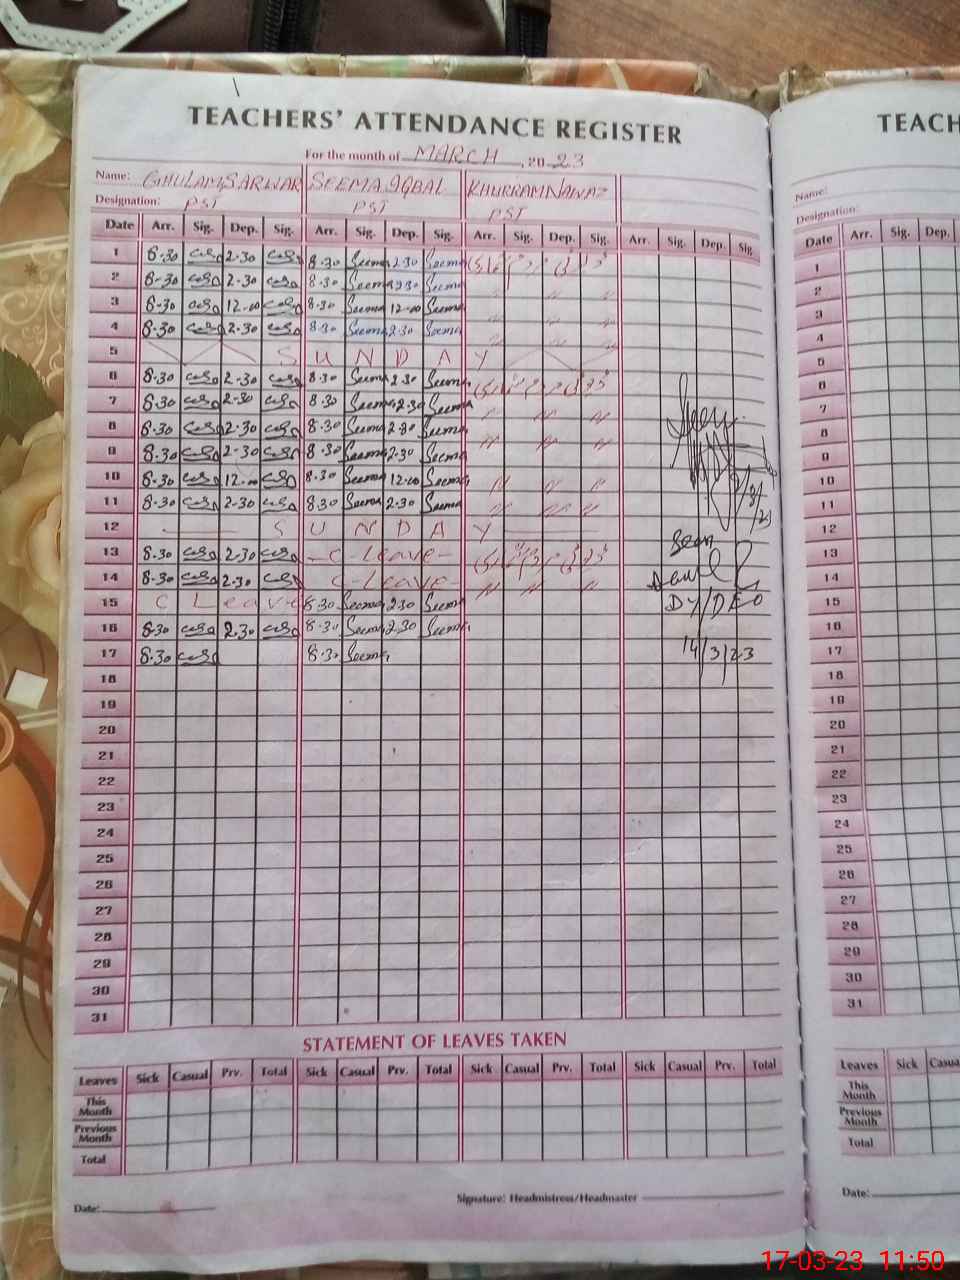 TEACHERS' ATTENDANCE REGISTER
For the month of MARCH, 2023
Name: GHULAM SARWAR SEEMA IQBAL KHURRAM NAWAZ
Designation: PST PST PST
Date Arr. Sig. Dep. Sig. Arr. Sig. Dep. Sig. Arr. Sig. Dep. Sig. Arr. Sig. Dep. Sig.
1 8.30 2.30 8.30 Seema 2.30 Seema
2 8.30 2.30 8.30 Seema 2.30 Seema
3 8.30 12.00 8.30 Seema 12.00 Seema
4 8.30 2.30 8.30 Seema 2.30 Seema
5 SUNDAY
6 8.30 2.30 8.30 Seema 2.30 Seema
7 8.30 2.30 8.30 Seema 2.30 Seema
8 8.30 2.30 8.30 Seema 2.30 Seema
9 8.30 2.30 8.30 Seema 2.30 Seema
10 8.30 12.00 8.30 Seema 12.00 Seema
11 8.30 2.30 8.30 Seema 2.30 Seema
12 SUNDAY
13 8.30 2.30 - C-Leave - Seen
14 8.30 2.30 C-Leave -
15 C Leave 8.30 Seema 2.30 Seema DY/DEO
16 8.30 2.30 8.30 Seema 2.30 Seema
17 8.30 8.30 Seema 14/3/23
18
19
20
21
22
23
24
25
26
27
28
29
30
31
STATEMENT OF LEAVES TAKEN
Leaves Sick Casual Prv. Total Sick Casual Prv. Total Sick Casual Prv. Total Sick Casual Prv. Total
This Month
Previous Month
Total
Date: Signature: Headmistress/Headmaster
TEACH
Name:
Designation:
Date Arr. Sig. Dep.
1
2
3
4
5
6
7
8
9
10
11
12
13
14
15
16
17
18
19
20
21
22
23
24
25
26
27
28
29
30
31
Leaves Sick Casua
This Month
Previous Month
Total
Date:
17-03-23 11:50